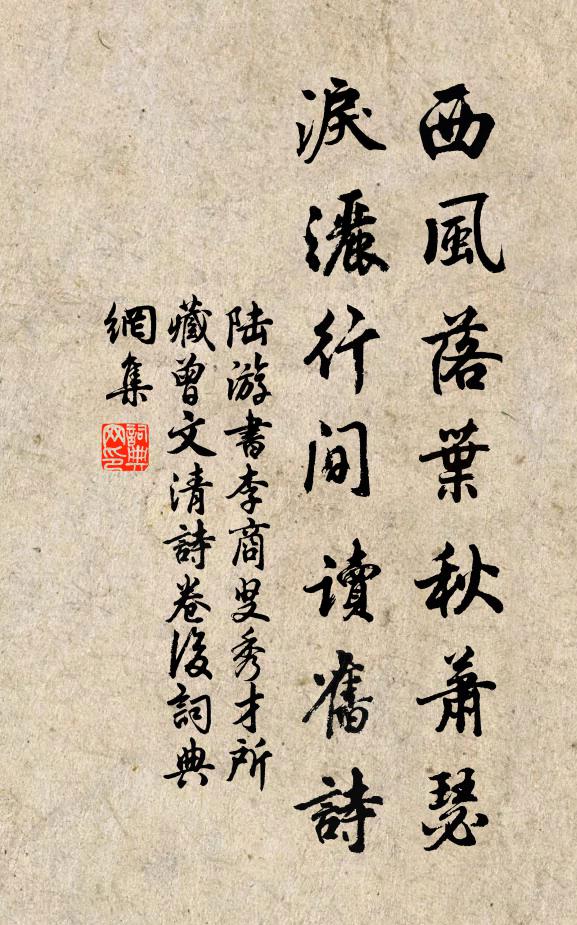 西風落葉秋蕭瑟
淚灑行間讀舊詩
陸游書李商叟秀才所
藏曾文清詩卷後詞典
網集
詞典
网印